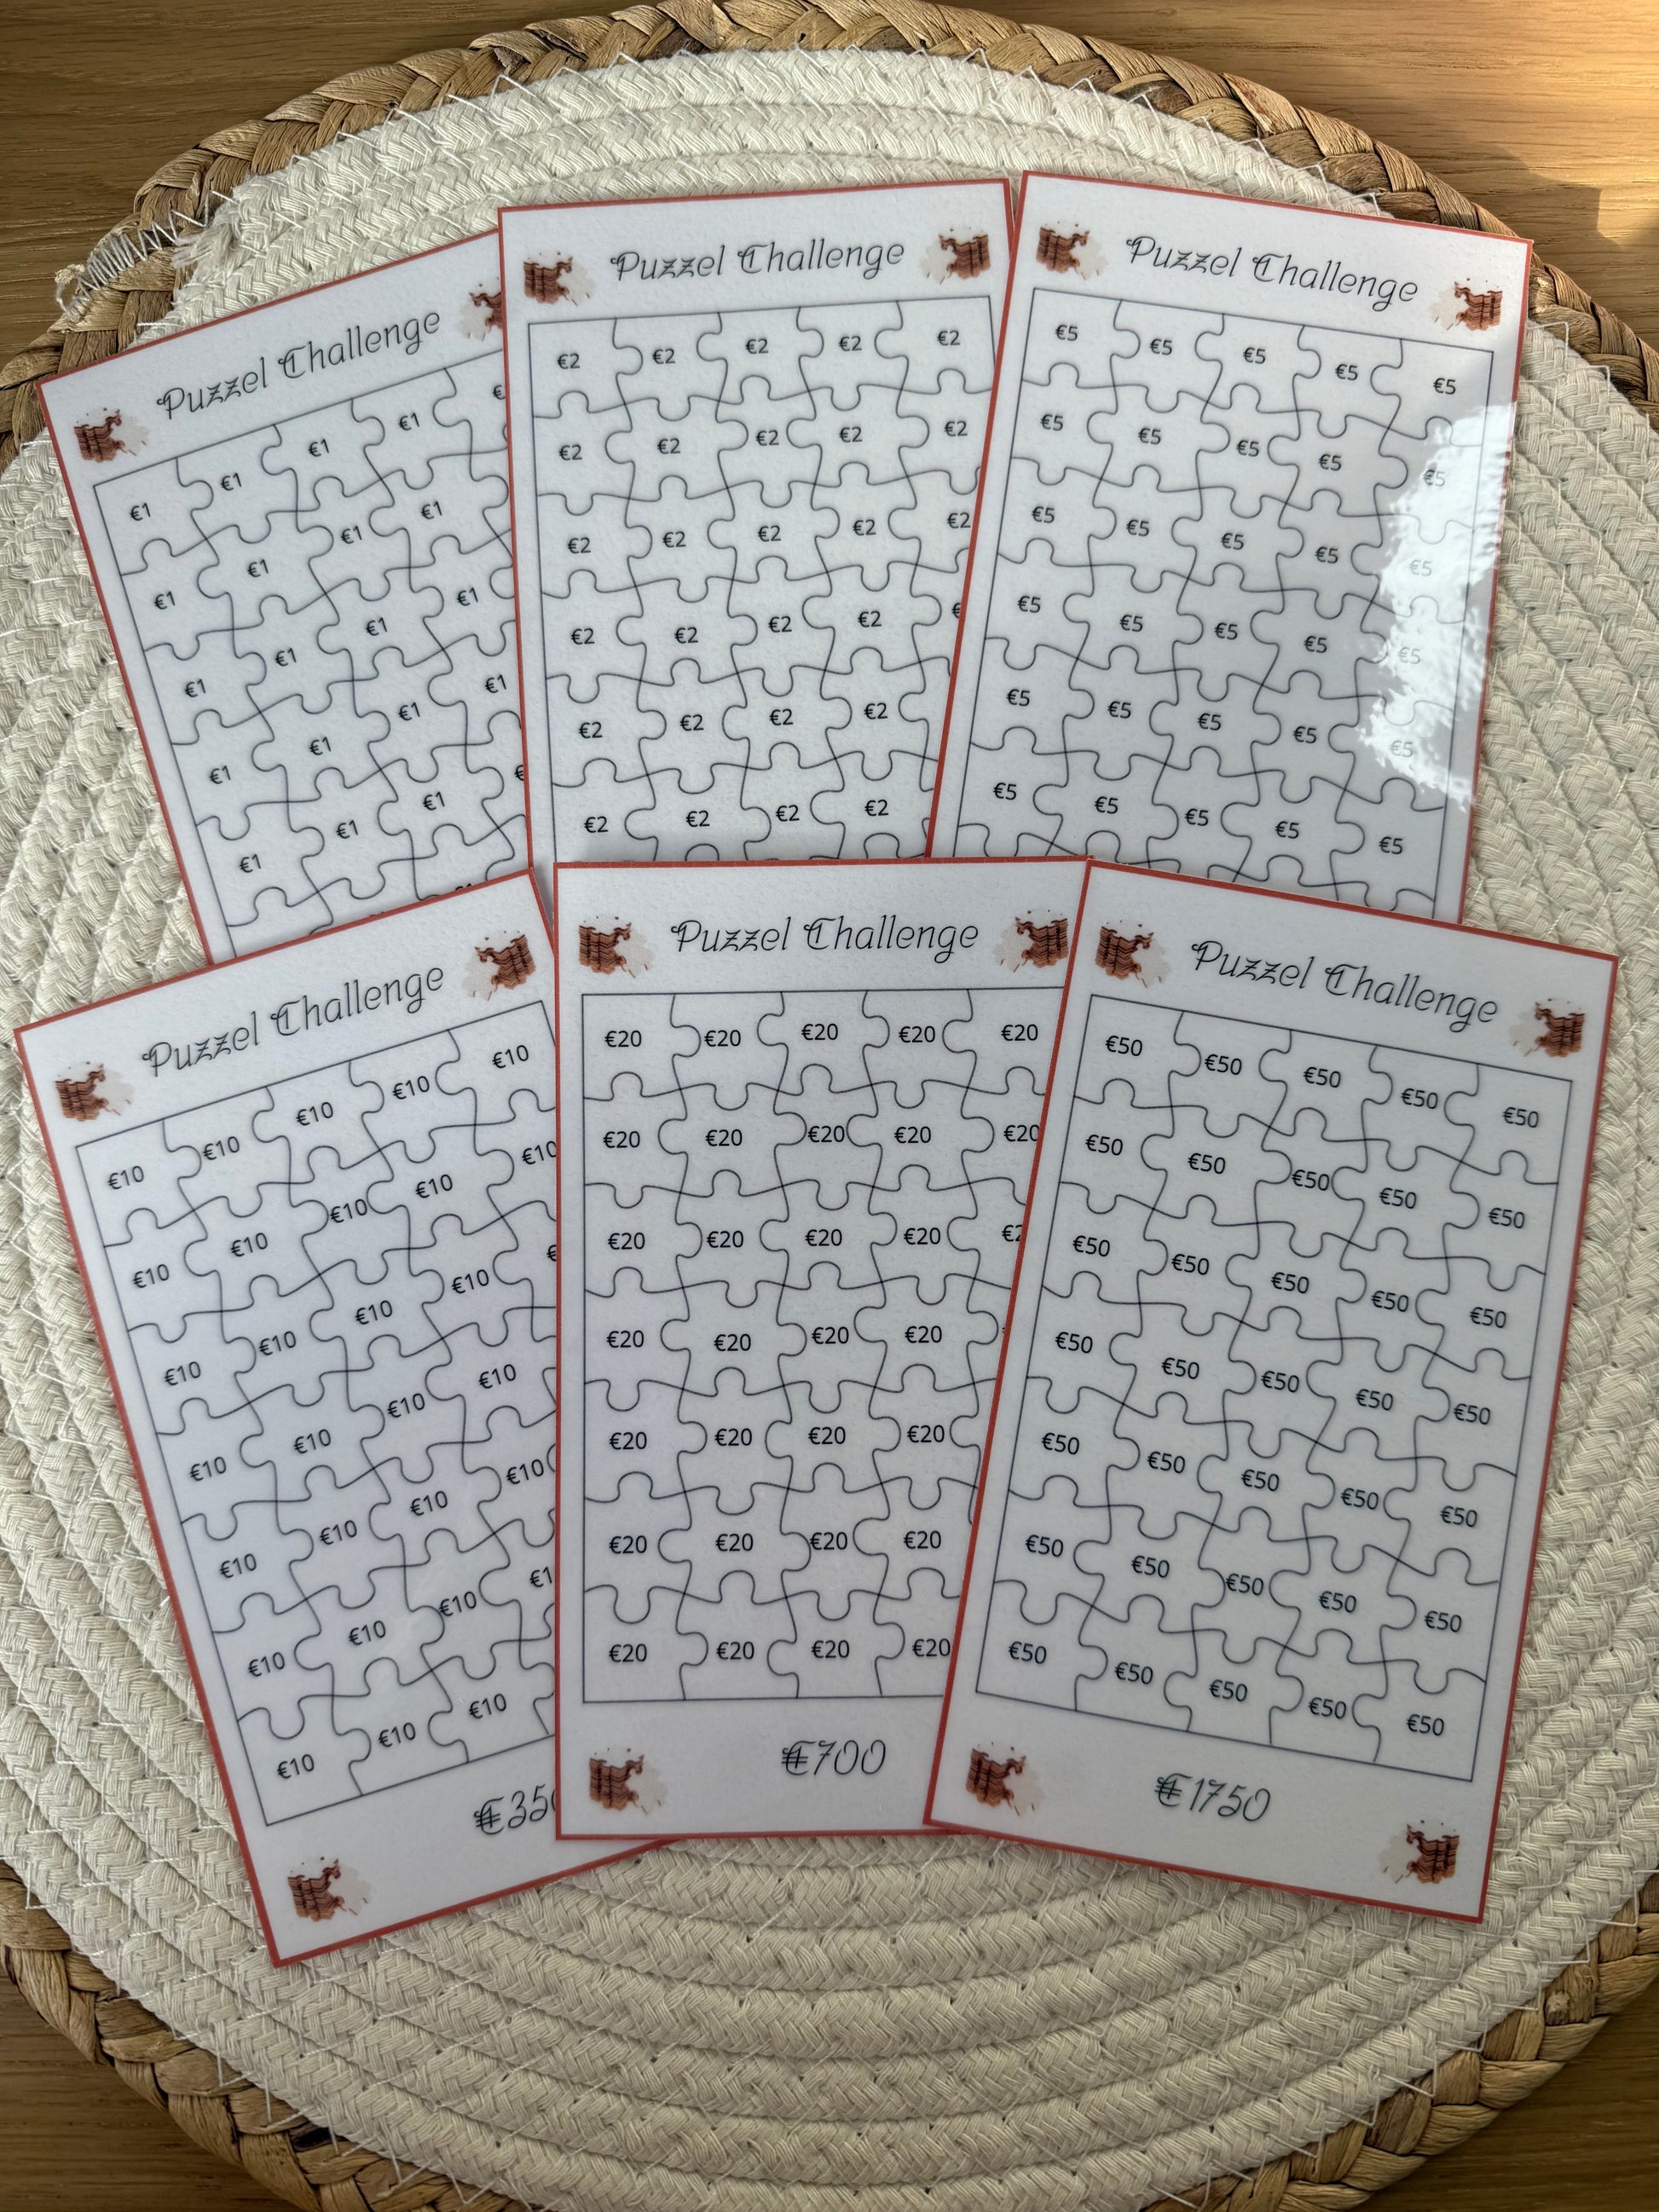 Puzzel Challenge
€1 €1 €1 €1
€1 €1 €1 €1
€1 €1 €1 €1
€1 €1 €1 €1
€1 €1 €1
Puzzel Challenge
€2 €2 €2 €2 €2
€2 €2 €2 €2 €2
€2 €2 €2 €2 €2
€2 €2 €2 €2
€2 €2 €2 €2
€2 €2 €2 €2
Puzzel Challenge
€5 €5 €5 €5 €5
€5 €5 €5 €5 €5
€5 €5 €5 €5 €5
€5 €5 €5 €5 €5
€5 €5 €5 €5 €5
€5 €5 €5 €5 €5
Puzzel Challenge
€10 €10 €10 €10 €10
€10 €10 €10 €10 €10
€10 €10 €10 €10
€10 €10 €10 €10
€10 €10 €10 €10
€10 €10 €10
€10 €10 €10
Puzzel Challenge
€20 €20 €20 €20 €20
€20 €20 €20 €20 €20
€20 €20 €20 €20
€20 €20 €20 €20
€20 €20 €20 €20
€20 €20 €20 €20
€20 €20 €20 €20
€700
Puzzel Challenge
€50 €50 €50 €50 €50
€50 €50 €50 €50 €50
€50 €50 €50 €50 €50
€50 €50 €50 €50 €50
€50 €50 €50 €50 €50
€50 €50 €50 €50 €50
€50 €50 €50 €50 €50
€1750